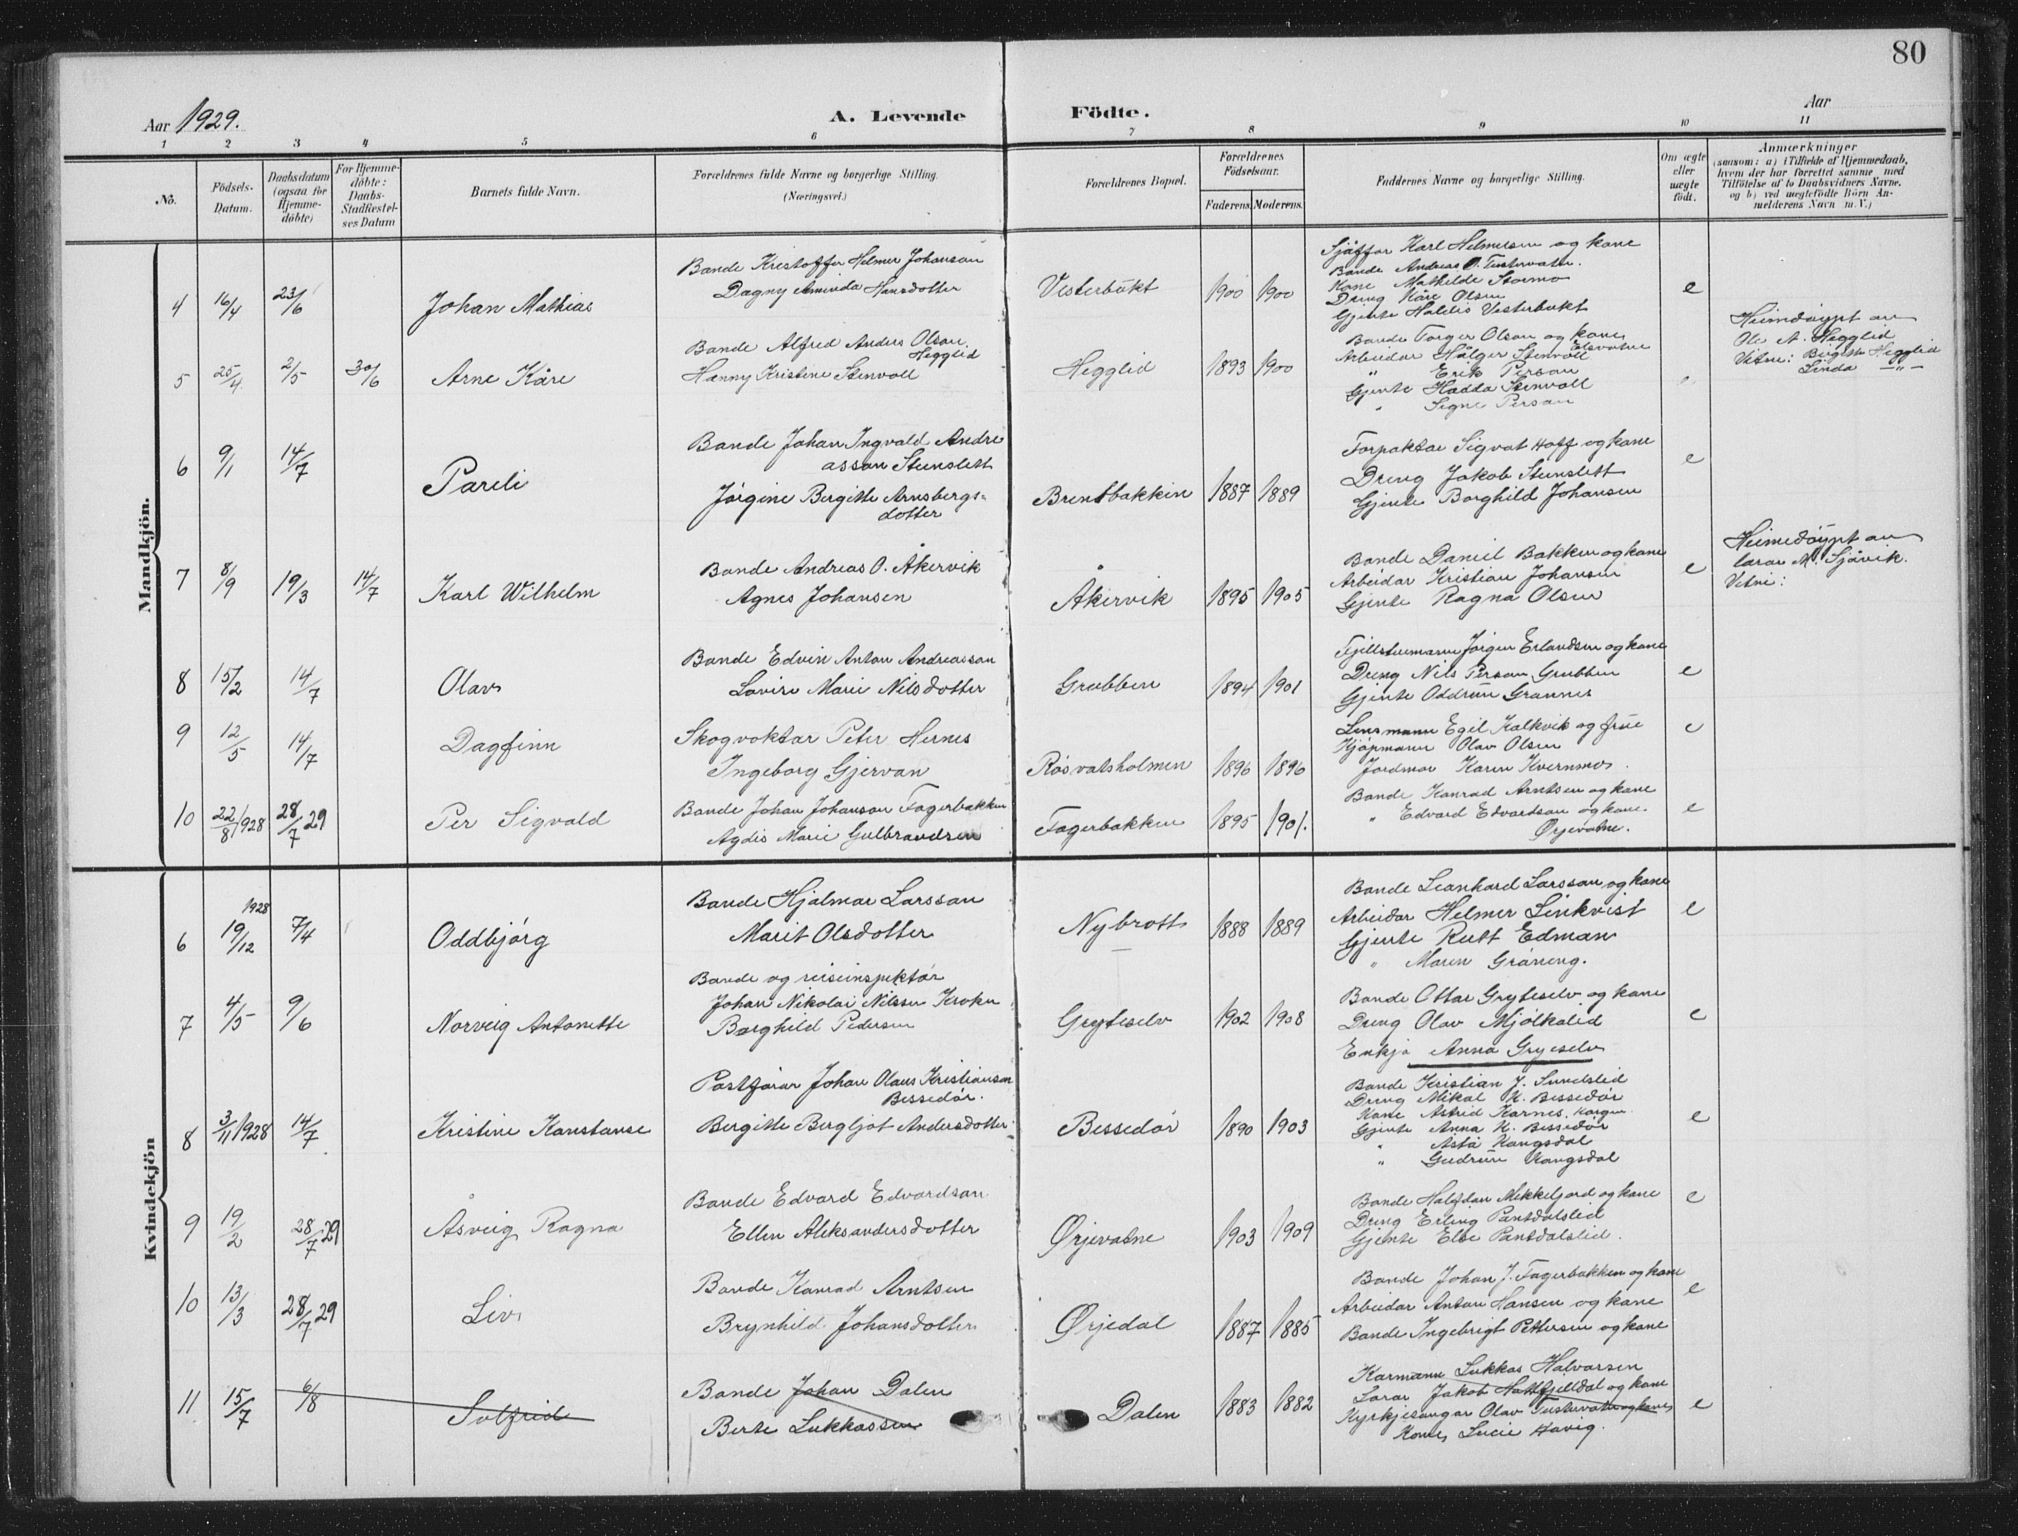 80
Aar 1929.
A. Levende Födte.
Aar
1 2 3 4 5 6 7 8 9 10 11
No.
Födsels-Datum.
Daabsdatum (ogsaa for Hjemme-döbte)
For Hjemme-döbte: Daabs-Stadfæstel-ses Datum
Barnets fulde Navn.
Forældrenes fulde Navne og borgerlige Stilling. (Næringsvei.)
Forældrenes Bopæl.
Forældrenes Födselsaar.
Faderens. Moderens.
Faddernes Navne og borgerlige Stilling.
Om ægte eller uægte födt.
Anmærkninger
(saasom: a) i Tilfælde af Hjemmedaab,
hvem der har forrettet samme med
Tilföielse af to Daabsvidners Navne.
og b) ved uægtefödte Börn An-
melderens Navn m. V.)
Mandkjön.
4 16/4 23/6 Johan Mathias
Bonde Kristoffer Helmer Johansan
Dagny Aminda Hansdotter
Vesterbukt 1900 1900
Sjåffør Karl Helmersen og kone
Bonde Andreas O. Tustervatn.
Kone Mathilde Stormo
Dreng Kåre Olsen
Gjente Haldis Vesterbukt
e
5 25/4 2/5 30/6 Arne Kåre
Bonde Alfred Anders Olsan
Hegglid
Hanny Kristine Stenvoll
Hegglid 1893 1900
Bonde Torger Olsen og kone
Arbeidar Holger Stenvoll
" Erik Person
Gjente Hadda Stenvoll
" Signe Person
"
Heimdøypt av
Ole A. Hegglid
Vitne: Birgitte Hegglid
Linda — " —
6 9/1 14/7 Pareli
Bonde Johan Ingvald Andre
assan Stenslett
Jørgine Bergitte Arnsbergs-
dotter
Brentbakken 1887 1889
Forpaktar Sigvat Hoff og kone
Dreng Jakob Stenslett
Gjente Borghild Johansen
e
7 8/9 19/3 14/7 Karl Wilhelm
Bonde Andreas O. Åkervik
Agnes Johansen
Åkervik 1895 1905
Bonde Daniel Bakken og kone
Arbeidar Kristian Johansen
Gjente Ragna Olsen
e
Heimedøypt av
lærar M. Sjåvik.
Vitni:
8 15/2 14/7 Olav
Bonde Edvin Anton Andreassan
Lovise Marie Nilsdotter
Grubben 1894 1901
Fjellstuemann Jørgen Erlandsen og kone
Dreng Nils Person Grubben
Gjente Oddrun Grannes
e
9 12/5 14/7 Dagfinn
Skogvoktar Peter Hernes
Ingeborg Gjervan
Røsvatsholmen 1896 1896
Lensmann Egil Kalkvik og frue
Kjøpmann Olav Olsen
Jordmor Karen Kvernmo.
e
10 22/8 1928 28/7 29 Per Sigvald
Bonde Johan Johansan Fagerbakken
Agdis Marie Gulbrandsen
Fagerbakken 1895 1901.
Bonde Konrad Arntsen og kone
" Edvard Edvardsan og kone.
Ørjevatne.
e
Kvindekjön
6 1928 19/12 7/4 Oddbjørg
Bonde Hjalmar Larssan
Marit Olsdotter
Nybrott 1888 1889
Bonde Leonhard Larssan og kone
Arbeidar Helmer Linkvist
Gjente Rutt Edman
" Maren Gråneng.
e
7 4/5 9/6 Norveig Antonette
Bonde og reiseinspektør
Johan Nikolai Nilssen Kroken
Borghild Pedersen
Gryteselv 1902 1908
Bonde Ottar Gryteselv og kone
Dreng Olav Mjølkalid
Enkja Anna Gryteselv
e
8 3/11 1928 14/7 Kristine Konstanse
Postførar Johan Olaus Kristiansan
Bessedør.
Bergitte Bergljot Andersdotter
Bessedør 1890 1903
Bonde Kristian J. Sundslid
Dreng Mikal K. Bessedør
Kone Astrid Karnes
Gjente Anna K. Bessedør
" Asta Kangsdal
" Gudrun Kangsdal
e
9 19/2 28/7 29 Åsveig Ragna
Bonde Edvard Edvardsan
Ellen Aleksandersdotter
Ørjevatne 1903 1909
Bonde Halfdan Mikkeljord og kone
Dreng Erling Pantdalslid
Gjente Else Pantdalslid.
e
10 13/3 28/7 29 Liv
Bonde Konrad Arntsen
Brynhild Johansdotter
Ørjedal 1887 1885
Bonde Johan J. Fagerbakken og kone
Arbeidar Anton Hansen og kone
Bonde Ingebrigt Pettersen og kone
e
11 15/7 6/8 Solfrid
Bonde Johan Dalen
Berte Lukkassen
Dalen 1883 1882
Kármann Lukkas Halvarsen
Lærar Jakob Hattfjelldal og kone
Kyrkjesongar Olav Tustervatn og kone
Kone Lucie Havig.
e